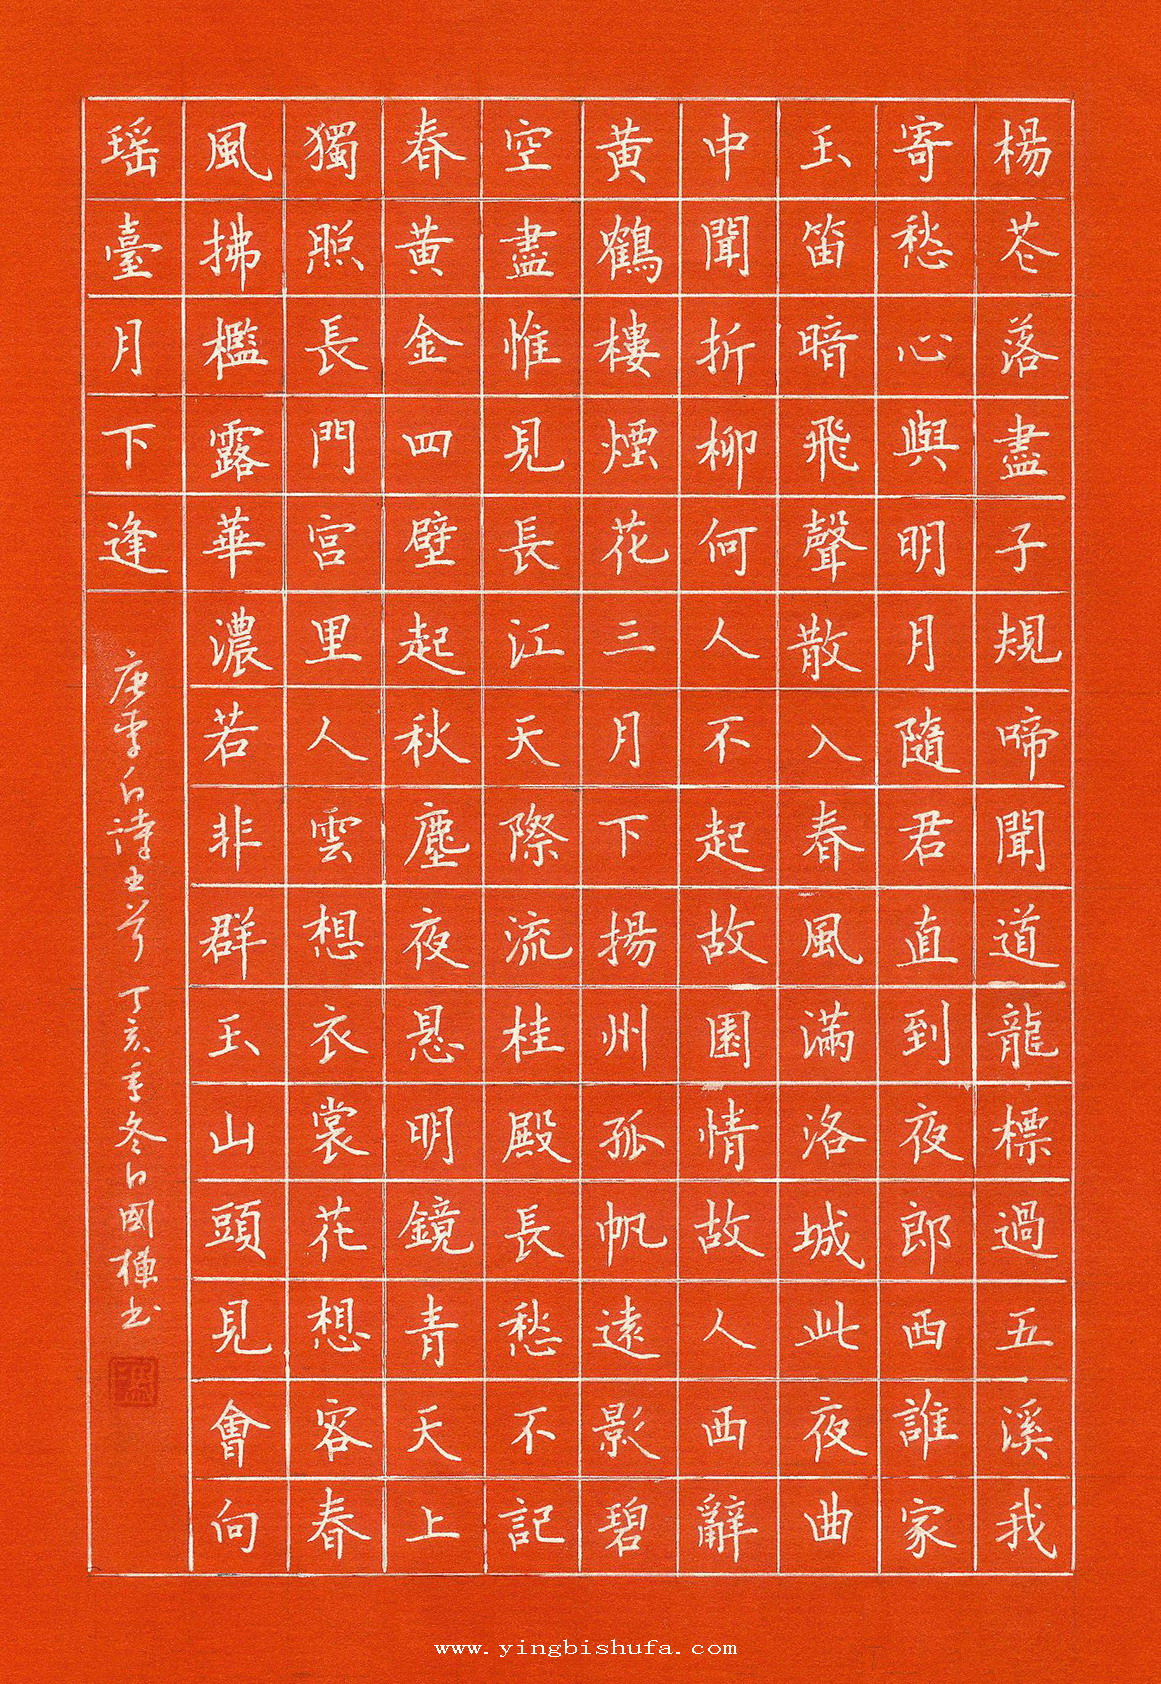 楊花落盡子規啼聞道龍標過五溪我
寄愁心與明月隨君直到夜郎西誰家
玉笛暗飛聲散入春風滿洛城此夜曲
中聞折柳何人不起故園情故人西辭
黄鶴樓煙花三月下揚州孤帆遠影碧
空盡惟見長江天際流桂殿長愁不記
春黄金四壁起秋塵夜悬明鏡青天上
獨照長門宫里人雲想衣裳花想容春
風拂檻露華濃若非群玉山頭見會向
瑶臺月下逢
唐李白詩五首 丁亥年冬白國棟书
www.yingbishufa.com